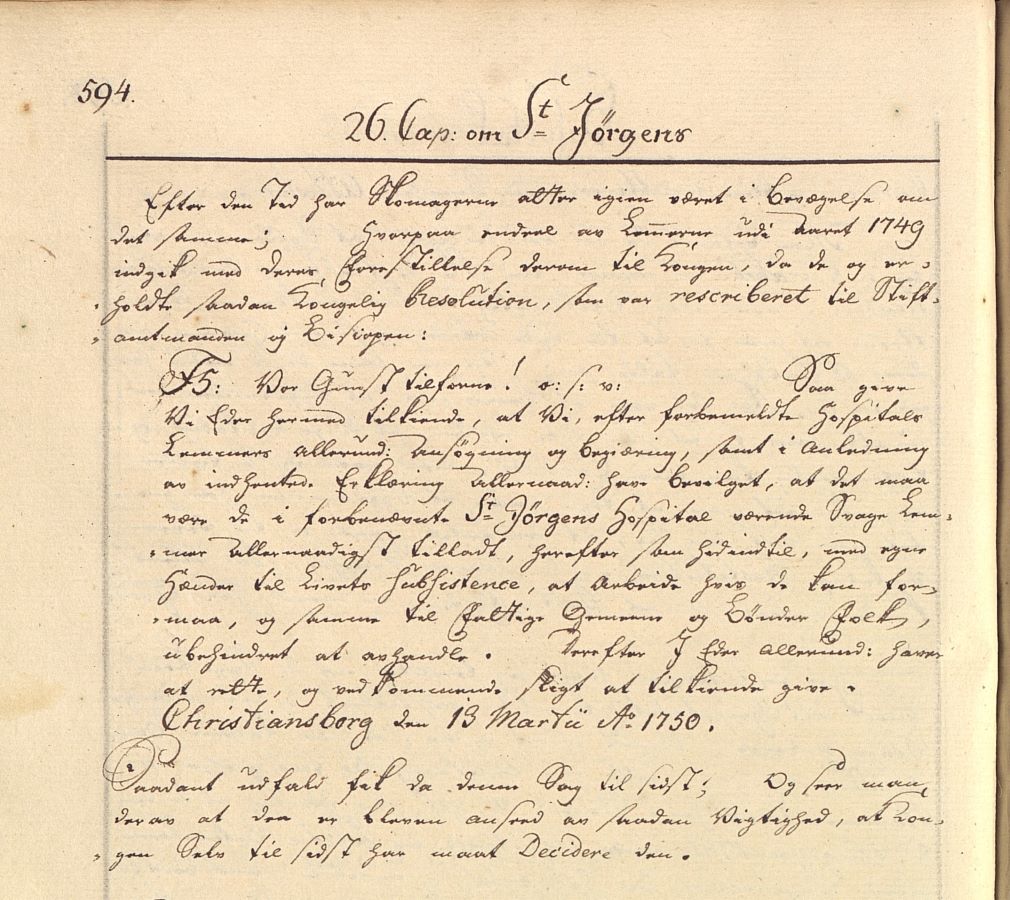 594.
26. Cap: om St Jörgens
Efter den Tid har Skomagerne atter igien været i Bevægelse om
det samme; Hvorpaa endeel av Lemmerne udi Aaret 1749
indgik med deres Forestillelse derom til Kongen, da de og er-
holdte saadan Kongelig Resolution, som var rescriberet til Stift-
amtmanden og Bisiopen:
F5: Vor Gunst tilforne! o: s: v: Saa give
Vi Eder hermed tilkiende, at Vi, efter forbemeldte Hospitals
Lemmers allerund: Ansøgning og begiæring, samt i Anledning
av indhentede Erklæring allernaad: have bevilget, at det maa
være de i forbenævnte St Jörgens Hospital værende Svage Lem-
mer allernaadigst tilladt, herefter som hidindtil, med egne
Hænder til Livets Subsistence, at Arbeide hvis de kan for-
maa, og samme til Fattige Gemeene og Bønder Folk,
ubehindret at avhandle. Derefter I Eder allerund: haver
at rette, og vedkommende sligt at tilkiende give.
Christiansborg den 13 Martii Ao 1750.
Saadant udfald fik da denne Sag til sidst; Og seer man
derav at den er bleven anseed av saadan Vigtighed, at Kon-
gen Selv til sidst har maat Decidere den.